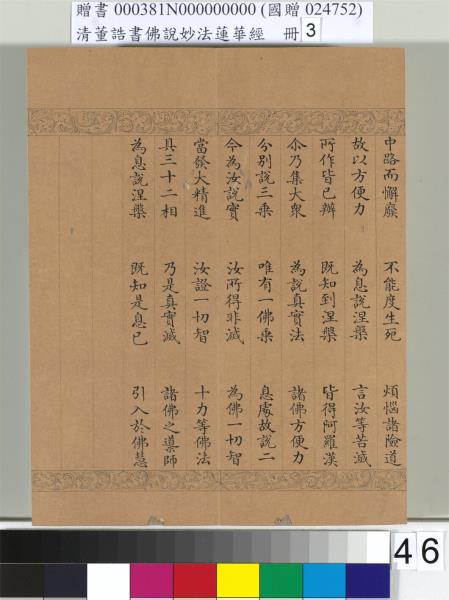 贈書 000381N000000000 (國贈 024752)
清董誥書佛說妙法蓮華經 冊 3
中路而懈廢 不能度生死 煩惱諸險道
故以方便力 為息說涅槃 言汝等苦滅
所作皆已辦 既知到涅槃 皆得阿羅漢
尒乃集大衆 為說真實法 諸佛方便力
分別說三乘 唯有一佛乘 息處故說二
今為汝說實 汝所得非滅 為佛一切智
當發大精進 汝證一切智 十力等佛法
具三十二相 乃是真實滅 諸佛之導師
為息說涅槃 既知是息已 引入於佛慧
46